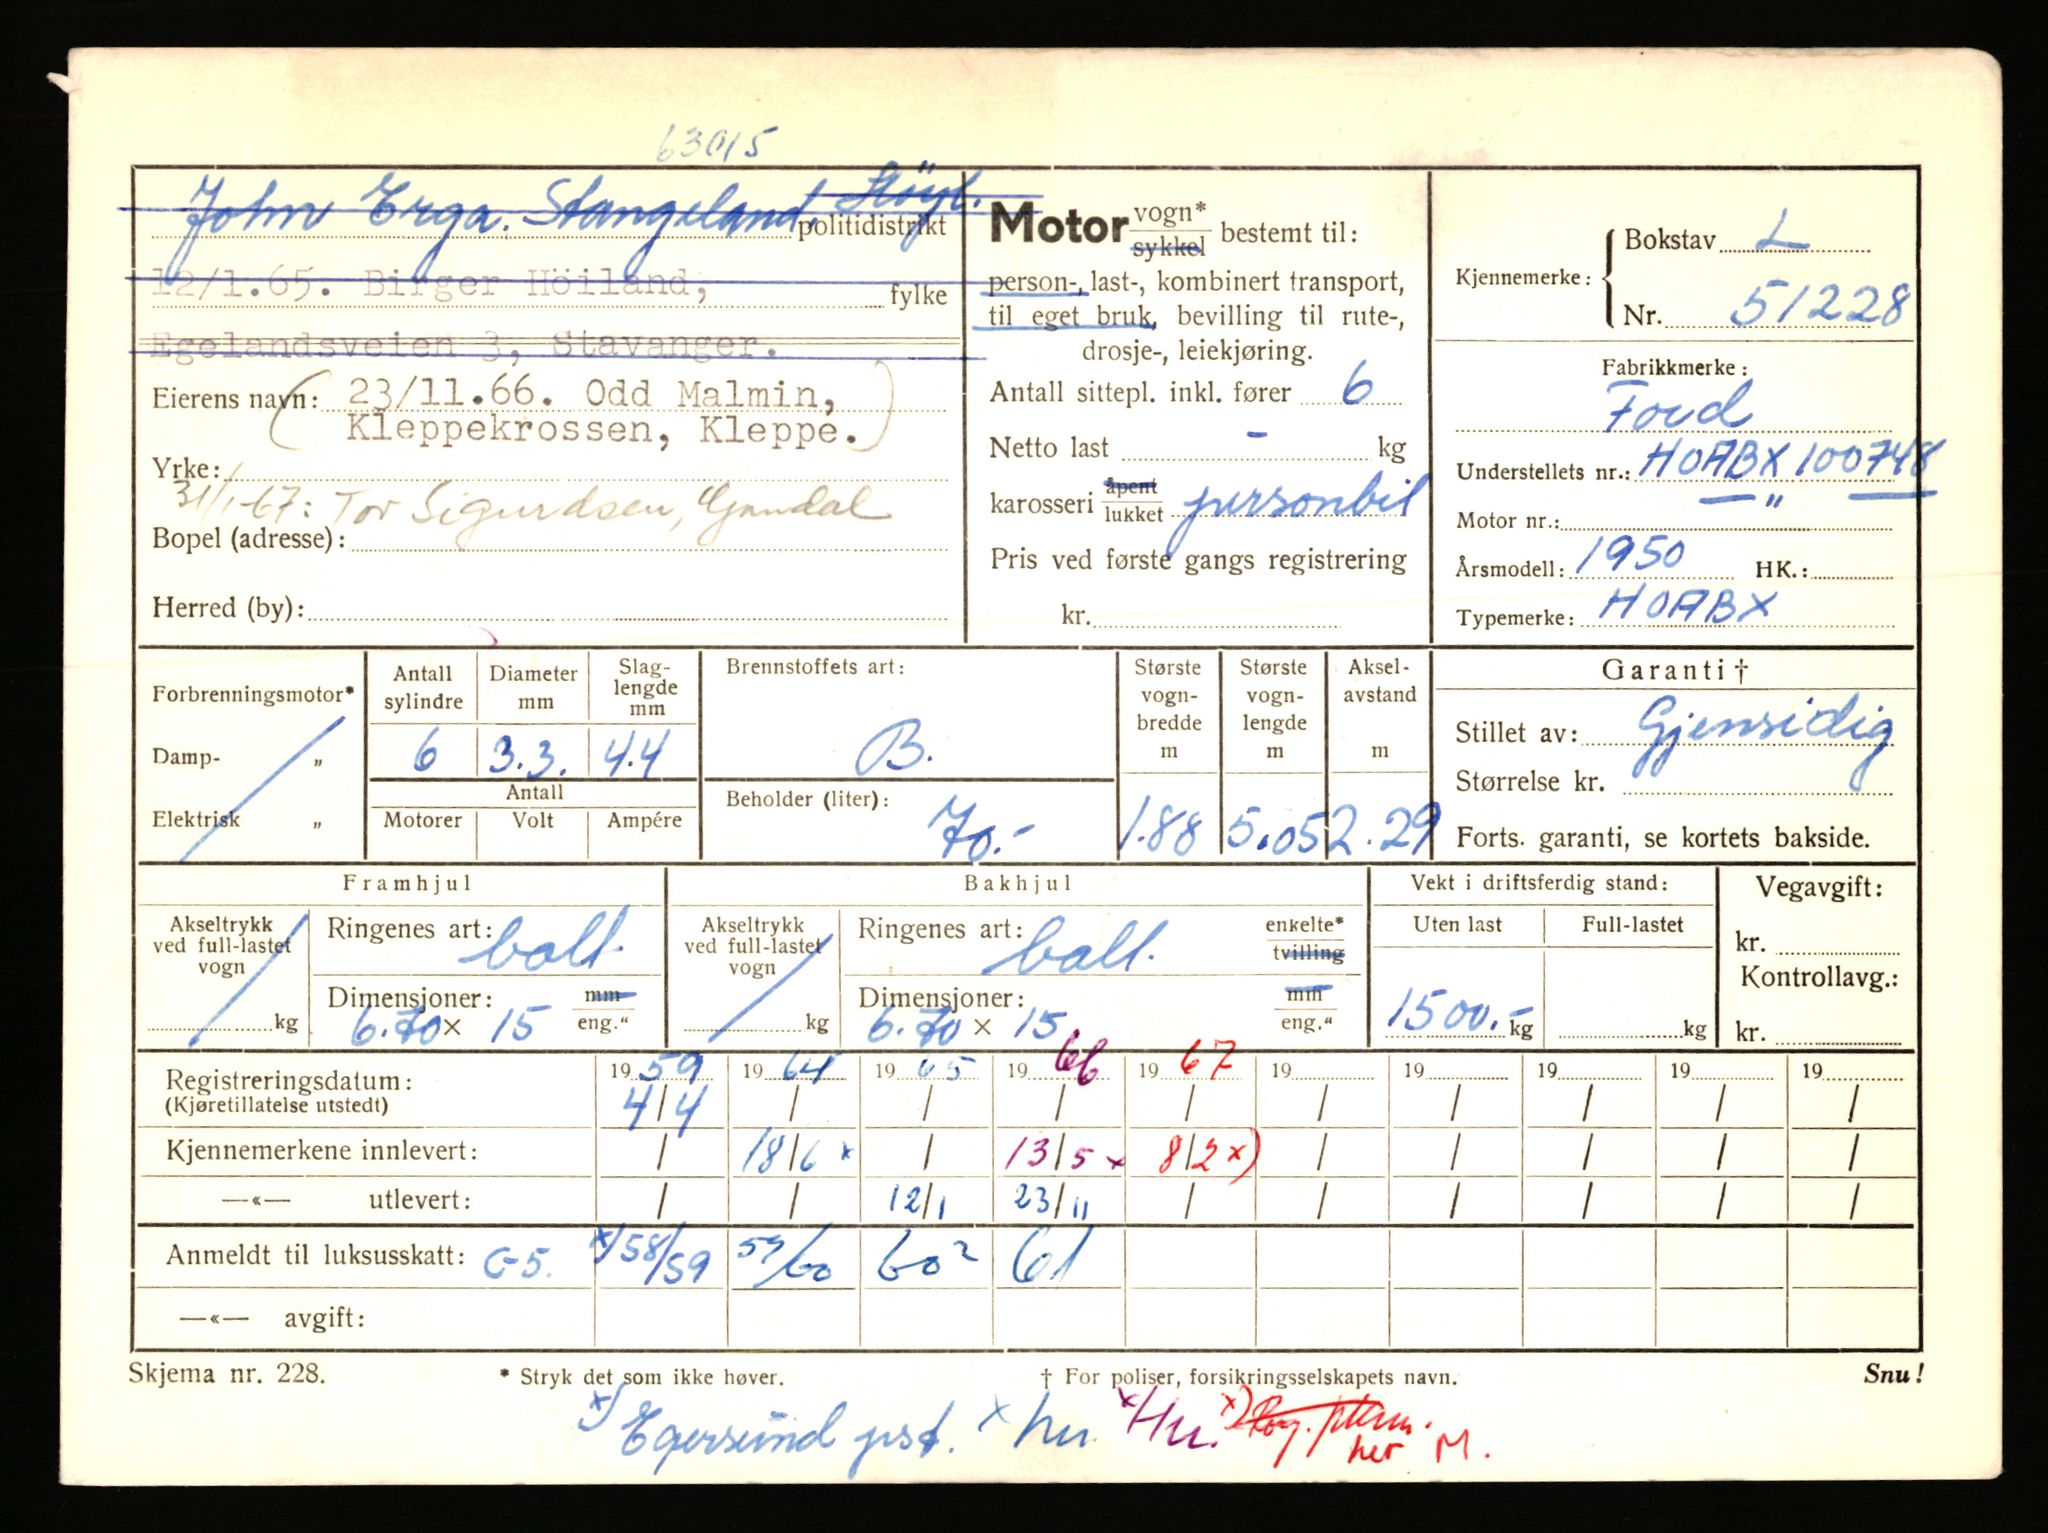 63015
John Erga. Stangeland, Höyl.
politidistrikt
12/1.65. Birger Höiland,
fylke
Egelandsveien 3, Stavanger.
Eierens navn: ( 23/11.66. Odd Malmin, )
Kleppekrossen, Kleppe.
Yrke:
31/1-67: Tor Sigurdsen, Gandal
Bopel (adresse):
Herred (by):
Motor vogn* sykkel bestemt til:
person-, last-, kombinert transport,
til eget bruk, bevilling til rute-,
drosje-, leiekjøring.
Antall sittepl. inkl. fører 6
Netto last - kg
karosseri åpent lukket personbil
Pris ved første gangs registrering
kr.
Kjennemerke: { Bokstav L
Nr. 51228
Fabrikkmerke:
Ford
Understellets nr.: HOABX 100748
Motor nr.: — " —
Årsmodell: 1950 HK.:
Typemerke: HOABX
Forbrenningsmotor*
Damp- „
Elektrisk „
Antall sylindre
6
Diameter mm
3.3.
Slag-
lengde
mm
4.4
Antall
Motorer Volt Ampére
Brennstoffets art:
B.
Beholder (liter):
70.-
Største
vogn-
bredde
m
1.88
Største
vogn-
lengde
m
5.05
Aksel-
avstand
m
2.29
Garanti †
Stillet av: Gjensidig
Størrelse kr.
Forts. garanti, se kortets bakside.
Framhjul
Akseltrykk
ved full-lastet
vogn
kg
Ringenes art: ball.
Dimensjoner: mm
6.70 x 15 eng."
Bakhjul
Akseltrykk
ved full-lastet
vogn
kg
Ringenes art: ball. enkelte* tvilling
Dimensjoner: mm
6.70 x 15 eng."
Vekt i driftsferdig stand:
Uten last Full-lastet
1500.- kg kg
Vegavgift:
kr.
Kontrollavg.:
kr.
Registreringsdatum: 19 59 19 64 19 65 19 66 19 67 19 19 19 19 19
(Kjøretillatelse utstedt) 4/4 / / / / / / / / /
Kjennemerkene innlevert: / 18/6 x / 13/5 x 8/2 x) / / / / /
—«— utlevert: / / 12/1 23/11 / / / / / /
Anmeldt til luksusskatt: G-5. x/58/59 59/60 60 2 61
—«— avgift:
Skjema nr. 228. * Stryk det som ikke høver. † For poliser, forsikringsselskapets navn. Snu!
x) Egersund pst. x hu. x/Hu. x)
her M.